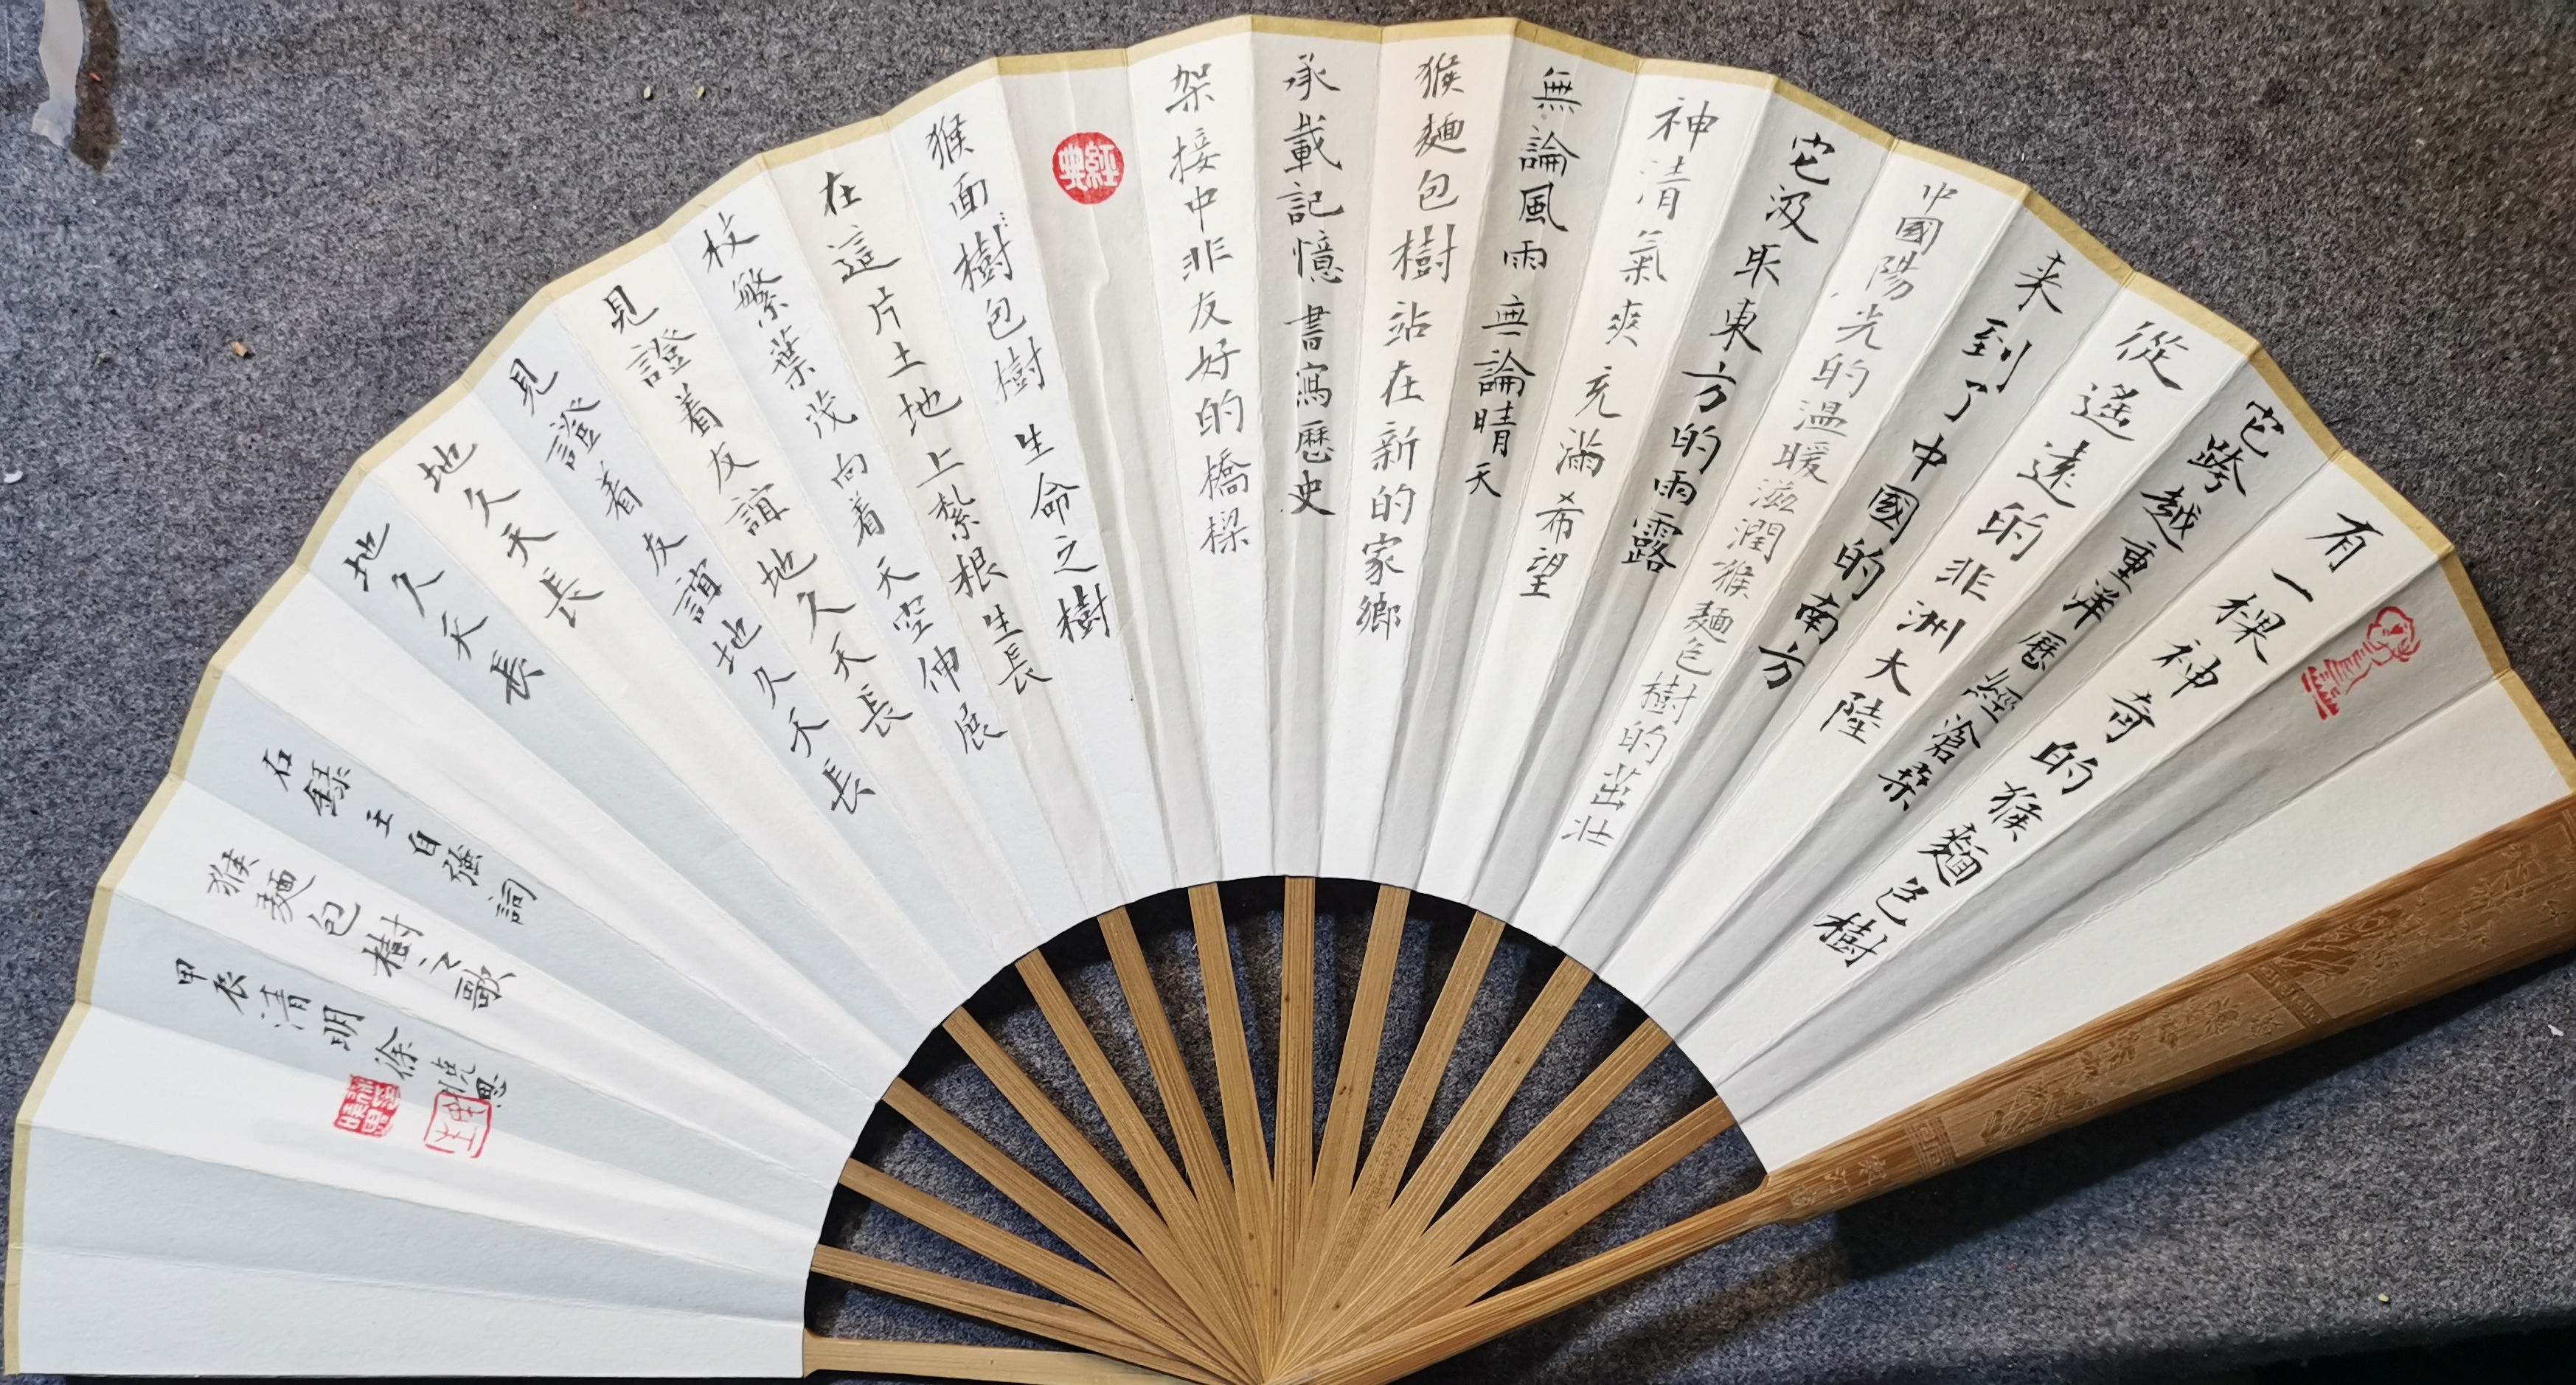 有一棵神奇的猴麵包樹
它跨越重洋 歷經滄桑
從遙遠的非洲大陸
来到了中國的南方
中國陽光的温暖滋潤猴麵包樹的茁壯
它汲取東方的雨露
神清氣爽 充滿希望
無論風雨 無論晴天
猴麵包樹站在新的家鄉
承載記憶 書寫歷史
架接中非友好的橋樑
經典
猴面樹包樹 生命之樹
在這片土地上紮根生長
枝繁葉茂向着天空伸展
見證着友誼地久天長
見證着友誼地久天長
地久天長
地久天長
石 主自強詞
猴麵包樹之歌
甲辰清明徐